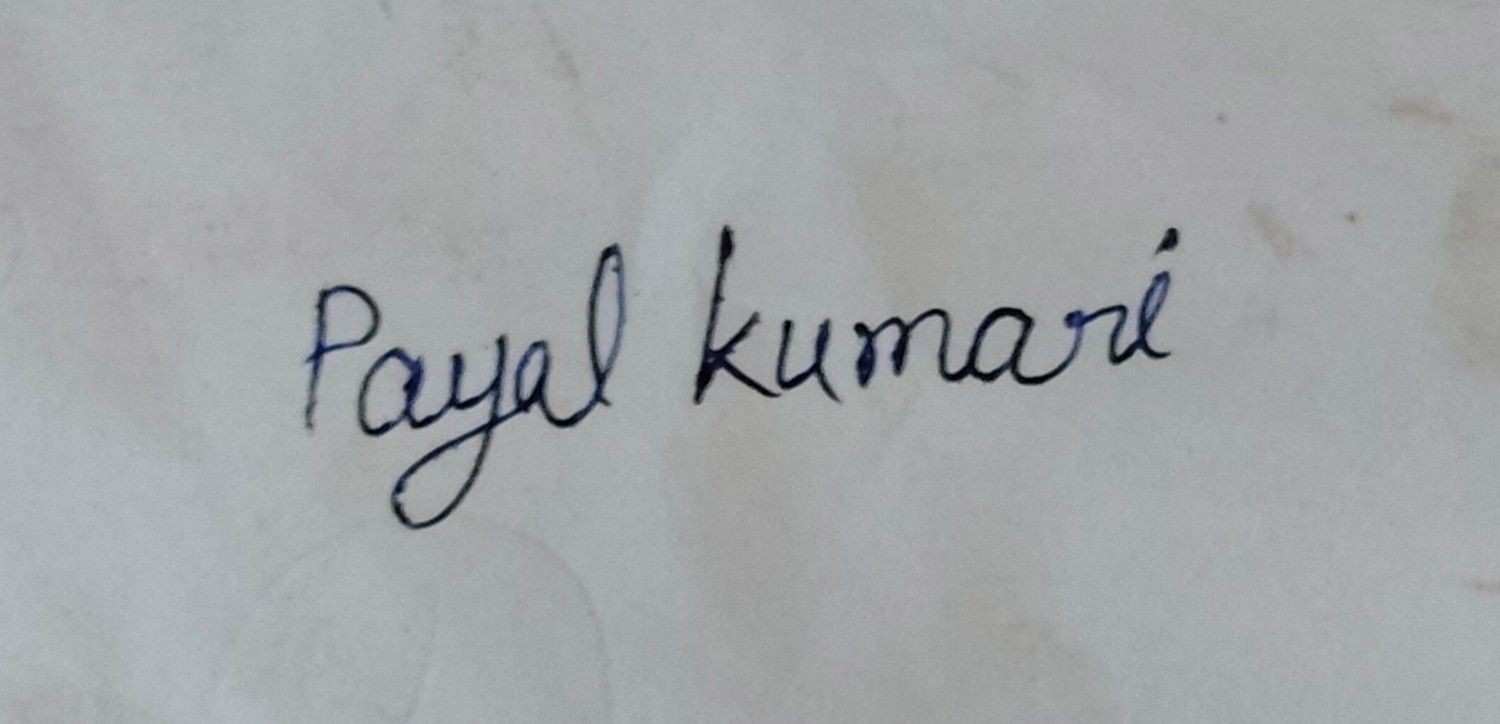 Payal kumari